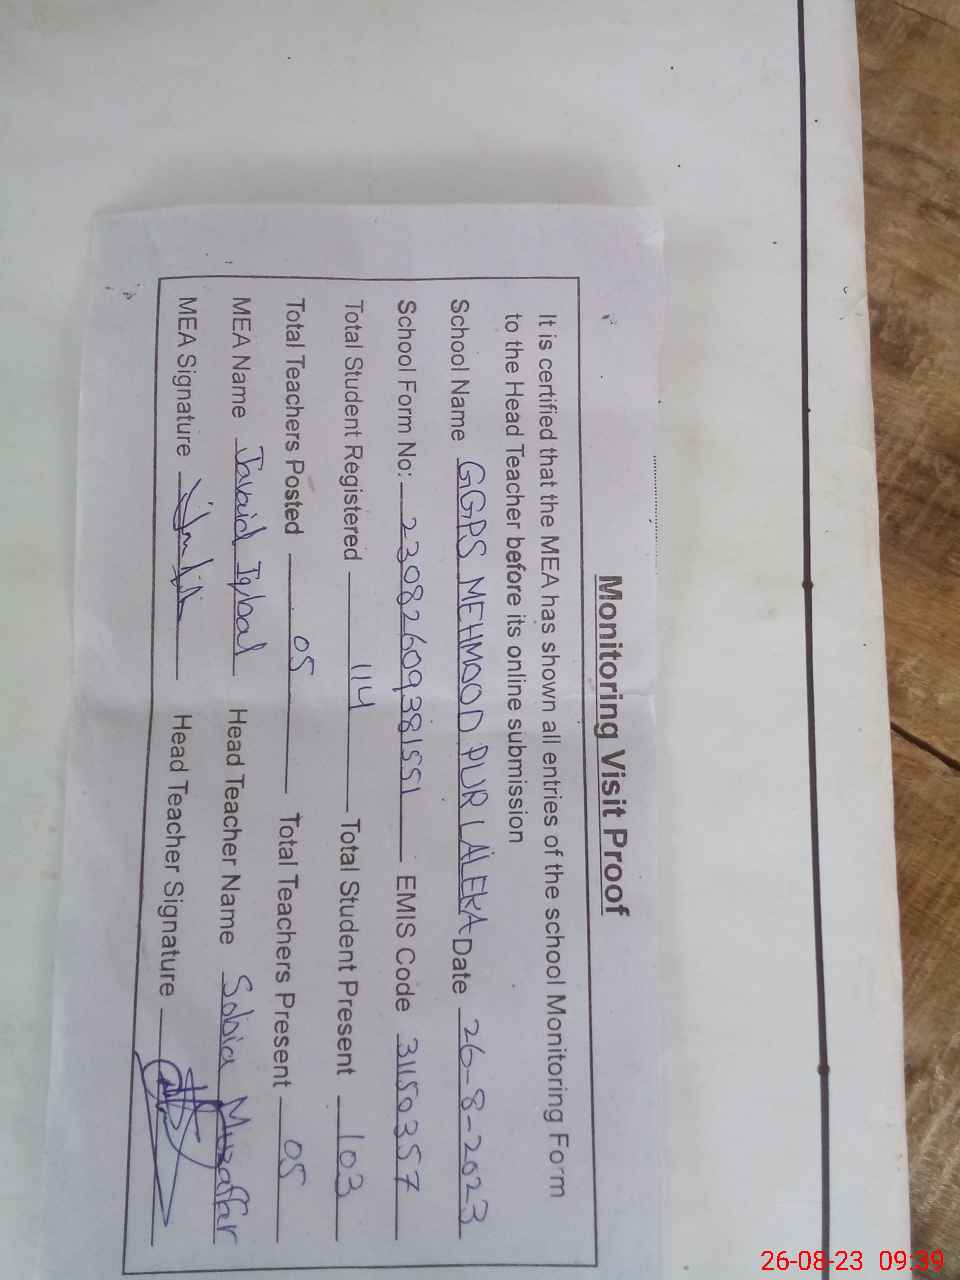 Monitoring Visit Proof
It is certified that the MEA has shown all entries of the school Monitoring Form
to the Head Teacher before its online submission
School Name GGPS MEHMOOD PUR LALEKA Date 26-8-2023
School Form No: 23082609381551 EMIS Code 31150357
Total Student Registered 114 Total Student Present 103
Total Teachers Posted 05 Total Teachers Present 05
MEA Name Javaid Iqbal Head Teacher Name Sobia Muzaffar
MEA Signature Head Teacher Signature
26-08-23 09:39